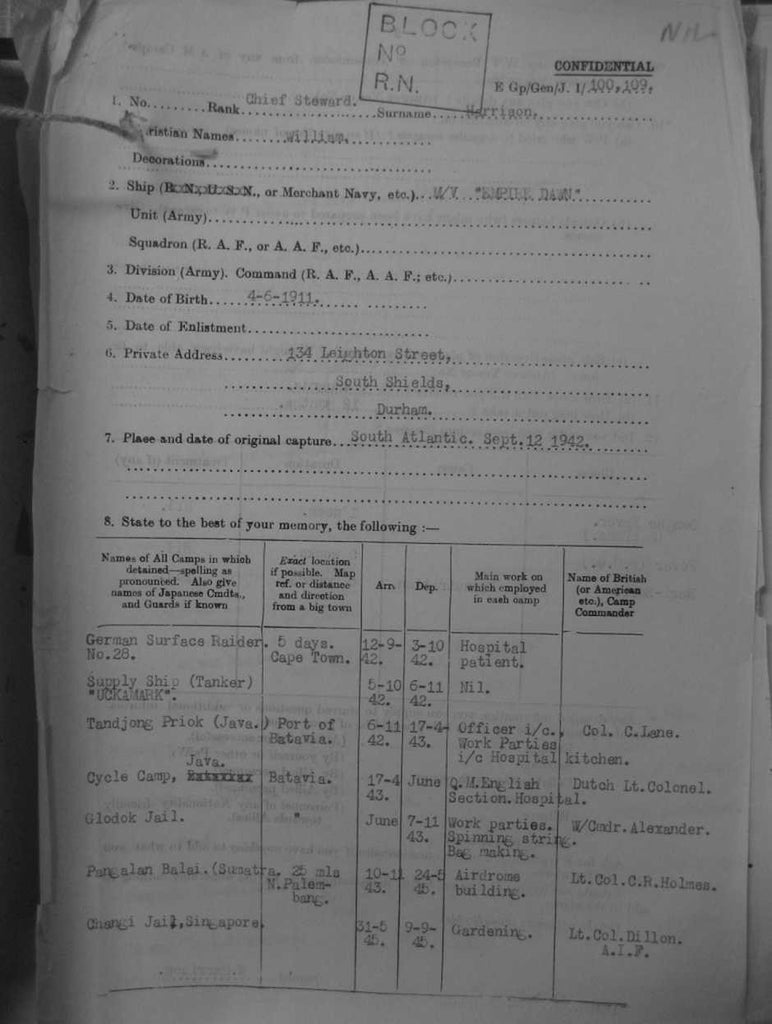 BLOCK
No
R.N.
NIL
CONFIDENTIAL
E Gp/Gen/J. 1/ 100,109,
1. No......... Rank Chief Steward. Surname Harrison,
Christian Names William.
Decorations
2. Ship (R.N., U.S.N., or Merchant Navy, etc.)... M/V. "EMPIRE DAWN"
Unit (Army)
Squadron (R. A. F., or A. A. F., etc.)
3. Division (Army). Command (R. A. F., A. A. F.; etc.)
4. Date of Birth 4-6-1911.
5. Date of Enlistment
6. Private Address 134 Leighton Street,
South Shields,
Durham.
7. Place and date of original capture... South Atlantic. Sept.12 1942.
8. State to the best of your memory, the following :—
Names of All Camps in which detained—spelling as pronounced. Also give names of Japanese Cmdts., and Guards if known
Exact location if possible. Map ref. or distance and direction from a big town
Arr.
Dep.
Main work on which employed in each camp
Name of British (or American etc.), Camp Commander
German Surface Raider. 5 days. 12-9- 3-10 Hospital
No.28. Cape Town. 42. 42. patient.
Supply Ship (Tanker) 5-10 6-11 Nil.
"UCKAMARK". 42. 42.
Tandjong Priok (Java.) Port of 6-11 17-4- Officer i/c. Col. C.Lane.
Batavia. 42. 43. Work Parties
i/c Hospital kitchen.
Java.
Cycle Camp, Batavia. 17-4 June Q.M.English Dutch Lt.Colonel.
43. Section.Hospital.
Glodok Jail. " June 7-11 Work parties. W/Cmdr. Alexander.
43. Spinning string.
Bag making.
Pangalan Balai.(Sumatra. 25 mls 10-11 24-5 Airdrome Lt.Col.C.R.Holmes.
N.Palem- 43. 45. building.
bang.
Changi Jail,Singapore. 31-5 9-9- Gardening. Lt.Col.Dillon.
45. 45. A.I.F.